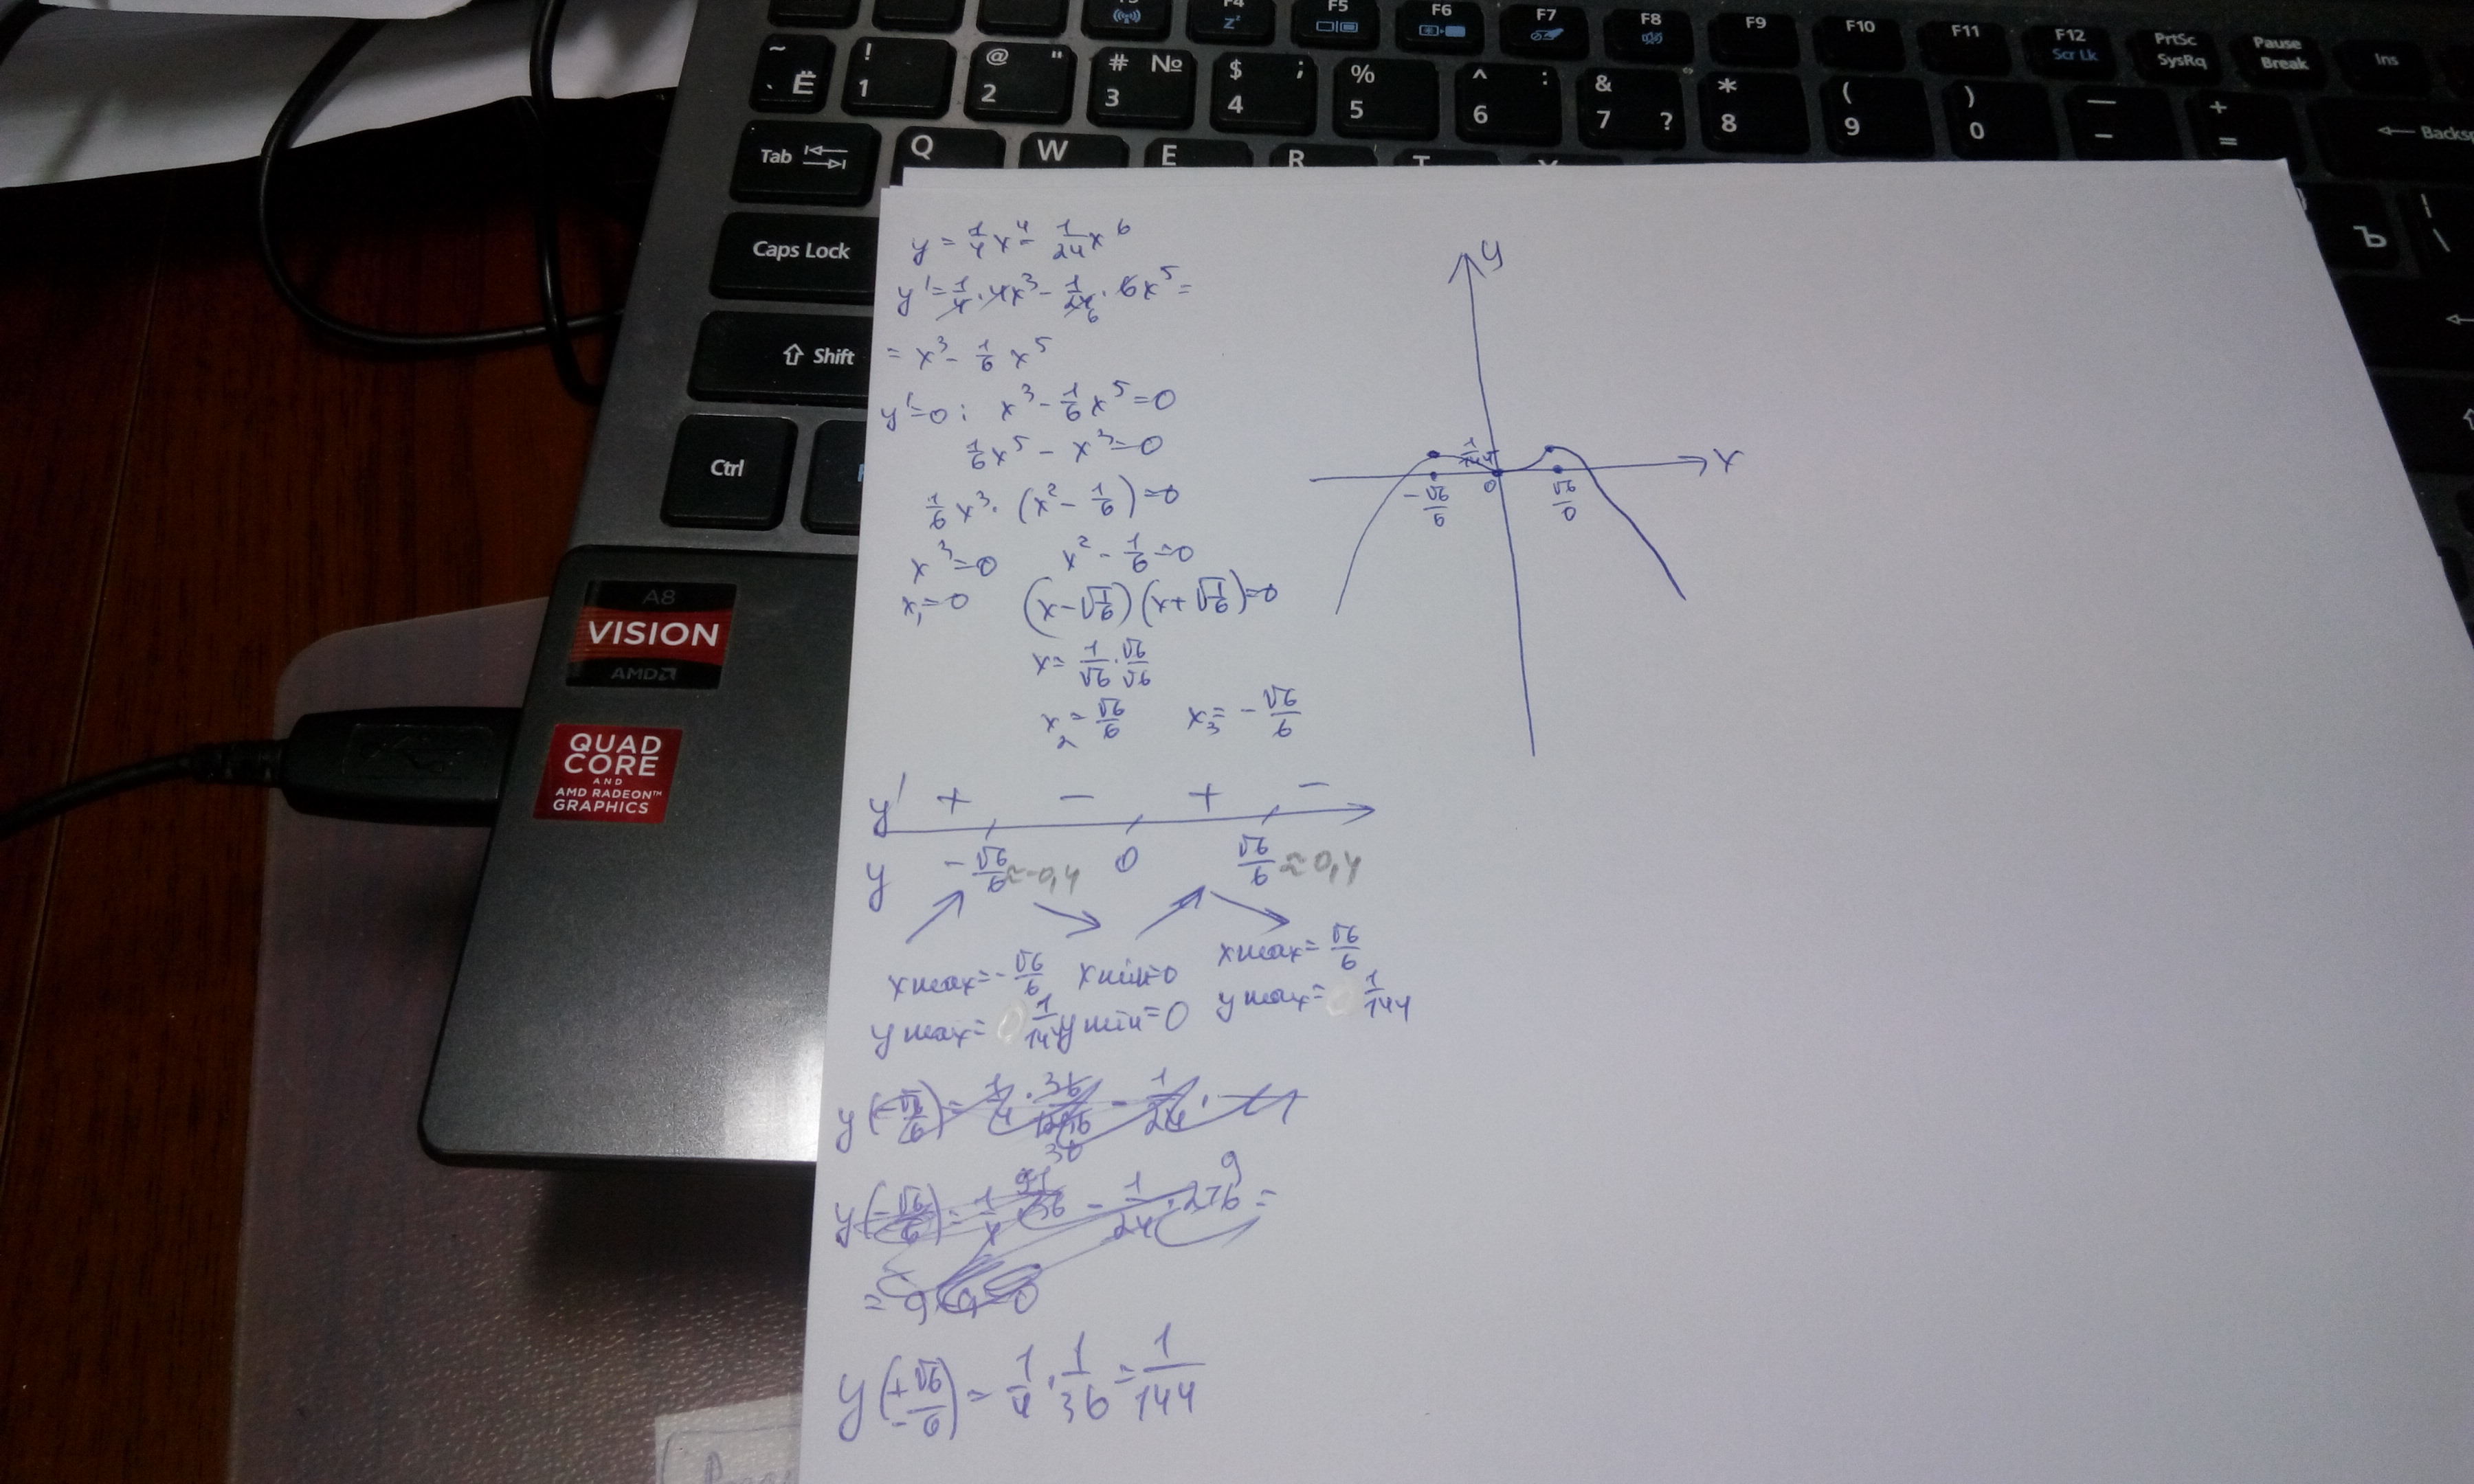 F4
F5
F6
F7
F8
F9
F10
F11
F12
Scr Lk
PrtSc
SysRq
Pause
Break
Ins
~ ` Ё
! 1
@ " 2
# № 3
$ ; 4
% 5
^ : 6
& 7 ?
* 8
( 9
) 0
— –
+ =
Backsp
Tab
Q W E R T Y
Caps Lock
Shift
Ctrl
Ъ
A8
VISION
AMD
QUAD
CORE
AND
AMD RADEON™
GRAPHICS
y = 1/4 x⁴ - 1/24 x⁶
y' = 1/4 · 4x³ - 1/24 6 · 6x⁵ =
= x³ - 1/6 x⁵
y'=0 : x³ - 1/6 x⁵ = 0
1/6 x⁵ - x³ = 0
1/6 x³ · (x² - 1/6) = 0
x³ = 0 x² - 1/6 = 0
x₁ = 0 (x - √1/6)(x + √1/6) = 0
x = 1/√6 · √6/√6
x₂ = √6/6 x₃ = - √6/6
y' + - + -
y - √6/6 ≈ -0,4 0 √6/6 ≈ 0,4
x max = - √6/6 x min = 0 x max = √6/6
y max = 1/144 y min = 0 y max = 1/144
y(-√6/6) = 1/4 · 36/ - 1/24 ·
36
y(-√6/6) = 1/4 · 36 - 1/24 · 276 =
9
y(±√6/6) = 1/4 · 1/36 = 1/144
y
x
1/144
- √6/6
0
√6/6